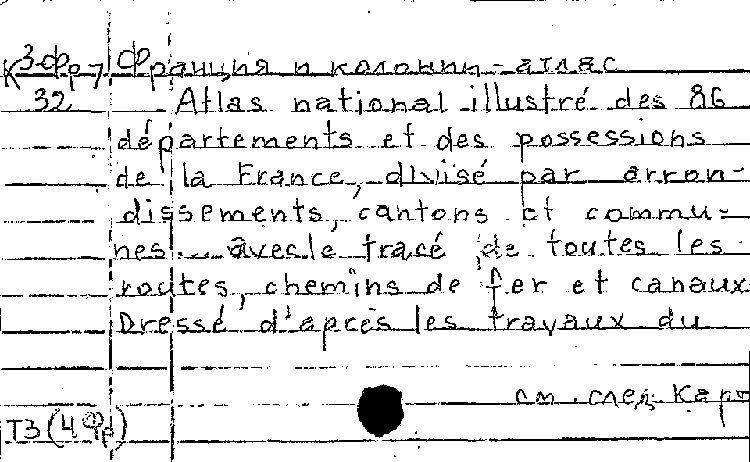 К 3-Фр-7 Франция и колонии - атлас
32 Atlas national illustré des 86
départements et des possessions
de la France, divisé par arron-
dissements, cantons et commu-
nes... avec le tracé de toutes les
routes, chemins de fer et canaux
Dressé d'après les travaux du
см. след. карт
Т3 (4Фр)